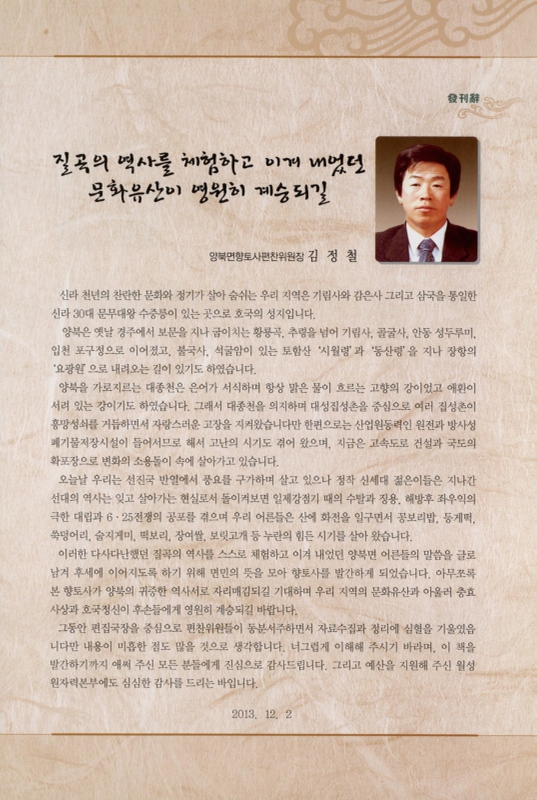 發刊辭
질곡의 역사를 체험하고 이겨 내었던
문화유산이 영원히 계승되길
양북면향토사편찬위원장 김 정 철
신라 천년의 찬란한 문화와 정기가 살아 숨쉬는 우리 지역은 기림사와 감은사 그리고 삼국을 통일한
신라 30대 문무대왕 수중릉이 있는 곳으로 호국의 성지입니다.
양북은 옛날 경주에서 보문을 지나 굽이치는 황룡곡, 추령을 넘어 기림사, 골굴사, 안동 성두루미,
입천 포구정으로 이어졌고, 불국사, 석굴암이 있는 토함산 ‘시월령’과 ‘동산령’을 지나 장항의
‘요광원’으로 내려오는 길이 있기도 하였습니다.
양북을 가로지르는 대종천은 은어가 서식하며 항상 맑은 물이 흐르는 고향의 강이었고 애환이
서려 있는 강이기도 하였습니다. 그래서 대종천을 의지하며 대성집성촌을 중심으로 여러 집성촌이
흥망성쇠를 거듭하면서 자랑스러운 고장을 지켜왔습니다만 한편으로는 산업원동력인 원전과 방사성
폐기물저장시설이 들어서므로 해서 고난의 시기도 겪어 왔으며, 지금은 고속도로 건설과 국도의
확포장으로 변화의 소용돌이 속에 살아가고 있습니다.
오늘날 우리는 선진국 반열에서 풍요를 구가하며 살고 있으나 정작 신세대 젊은이들은 지나간
선대의 역사는 잊고 살아가는 현실로서 돌이켜보면 일제강점기 때의 수탈과 징용, 해방후 좌우익의
극한 대립과 6·25전쟁의 공포를 겪으며 우리 어른들은 산에 화전을 일구면서 꽁보리밥, 등계떡,
쑥덩어리, 술지게미, 떡보리, 장여쌀, 보릿고개 등 누란의 힘든 시기를 살아 왔습니다.
이러한 다사다난했던 질곡의 역사를 스스로 체험하고 이겨 내었던 양북면 어른들의 말씀을 글로
남겨 후세에 이어지도록 하기 위해 면민의 뜻을 모아 향토사를 발간하게 되었습니다. 아무쪼록
본 향토사가 양북의 귀중한 역사서로 자리매김되길 기대하며 우리 지역의 문화유산과 아울러 충효
사상과 호국정신이 후손들에게 영원히 계승되길 바랍니다.
그동안 편집국장을 중심으로 편찬위원들이 동분서주하면서 자료수집과 정리에 심혈을 기울였읍
니다만 내용이 미흡한 점도 많을 것으로 생각합니다. 너그럽게 이해해 주시기 바라며, 이 책을
발간하기까지 애써 주신 모든 분들에게 진심으로 감사드립니다. 그리고 예산을 지원해 주신 월성
원자력본부에도 심심한 감사를 드리는 바입니다.
2013. 12. 2